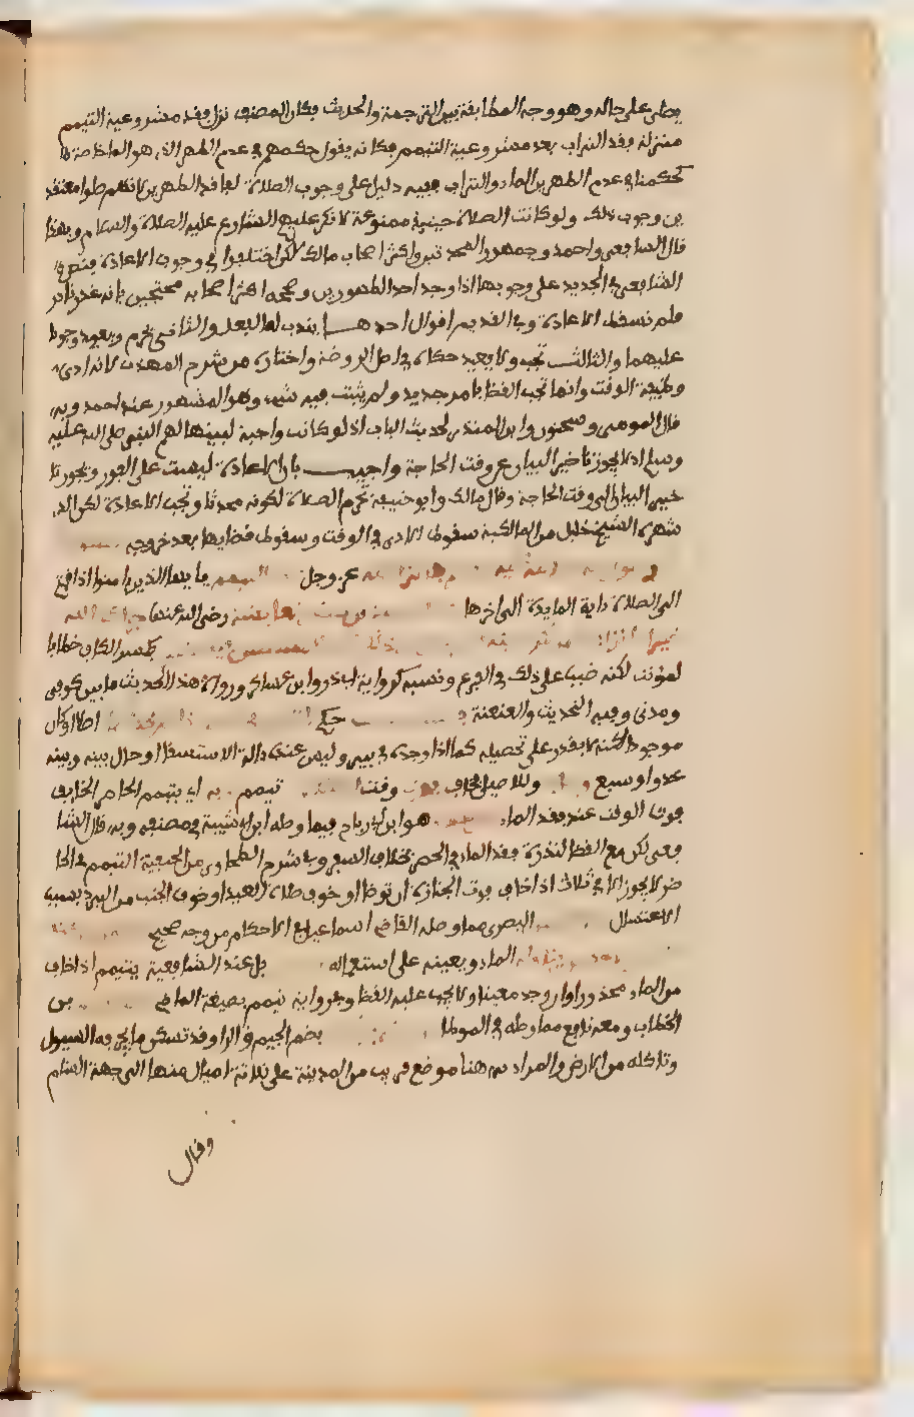 يصلي على حاله وهو وجه المطابقة بين الترجمة والحديث فكان المصنف نزل فقد مشروعية التيمم
منزلة فقد التراب بعد مشروعية التيمم فكانه يقول حكمهم في عدم المطهر الذي هو الماء خاصة
كحكمنا في عدم المطهرين الماء والتراب ففيه دليل على وجوب الصلاة لفاقد الطهورين لانهم صلوا معتقد
ين وجوب ذلك ولو كانت الصلاة حينئذ ممنوعة لانكر عليهم الشارع عليه الصلاة والسلام وبهذا
قال الشافعي واحمد وجمهور المحدثين واكثر اصحاب مالك لكن اختلفوا في وجوب الاعادة فنص
الشافعي في الجديد على وجوبها اذا وجد احد الطهورين وصححه اكثر اصحابه محتجين بانه عذر نادر
فلم تسقط الاعادة وفي القديم اقوال احدها يندب له الفعل والثاني يحرم ويعيد وجوبا
عليهما والثالث تجب ولا يعيد حكاه في اصل الروضة واختاره في شرح المهذب لانه ادى
وظيفة الوقت وانما يجب القضا بامر جديد ولم يثبت فيه شيء وهو المشهور عند احمد وبه
قال المزني وسحنون وابن المنذر لحديث الباب اذ لو كانت واجبة لبينها لهم النبي صلى الله عليه
وسلم اذ لا يجوز تاخير البيان عن وقت الحاجة واجيب بان الاعادة ليست على الفور ويجوز تا
خير البيان الى وقت الحاجة وقال مالك وابو حنيفة تحرم الصلاة لكونه محدثا وتجب الاعادة لكن الذي
شهره الشيخ خليل من المالكية سقوط الاداء في الوقت وسقوط قضايها بعد خروجه
عز وجل يايها الذين امنوا اذا قمتم
الى الصلاة داية المايدة الى اخرها رضي الله عنها جزاك الله
خيرا بكسر الكاف خطابا
لمؤنث لكنه ضبب على ذلك في الفرع ونسبه لرواية ابي ذر وابن عساكر ورواة هذا الحديث ما بين كوفي
ومدني وفيه التحديث والعنعنة اصلا او كان
موجودا لكنه لا يقدر على تحصيله كما اذا وجده في بير وليس عنده دالة الاستسقا او حال بينه وبينه
عدو او سبع وللاصيلي فخاف فوت وقت تيمم اي يتيمم الحاضر الخايف
فوت الوقت عند فقد الماء هو ابن ابي رباح فيما وصله ابن ابي شيبة في مصنفه وبه قال الشا
فعي لكن مع القضا لندرة فقد الماء في الحضر بخلاف السفر وفي شرح الطحاوي من الحنفية التيمم في الحا
ضر لا يجوز الا في ثلاث اذا خاف فوت الجنازة ان توضا او خوف صلاة العيد او خوف الجنب من البرد بسبب
الاغتسال البصري مما وصله القاضي اسماعيل في الاحكام من وجه صحيح
الماء ويعينه على استعماله بل عند الشافعية يتيمم اذا خاف
من الماء محذورا وان وجد معينا ولا يجب عليه القضا وفي رواية تيمم بصيغة الماضي بن
الخطاب ومعه نافع مما وصله في الموطا بضم الجيم والرا وقد تسكن ما يجرفه السيول
وتاكله من الارض والمراد به هنا موضع قريب من المدينة على ثلاثة اميال منها الى جهة الشام
وقال